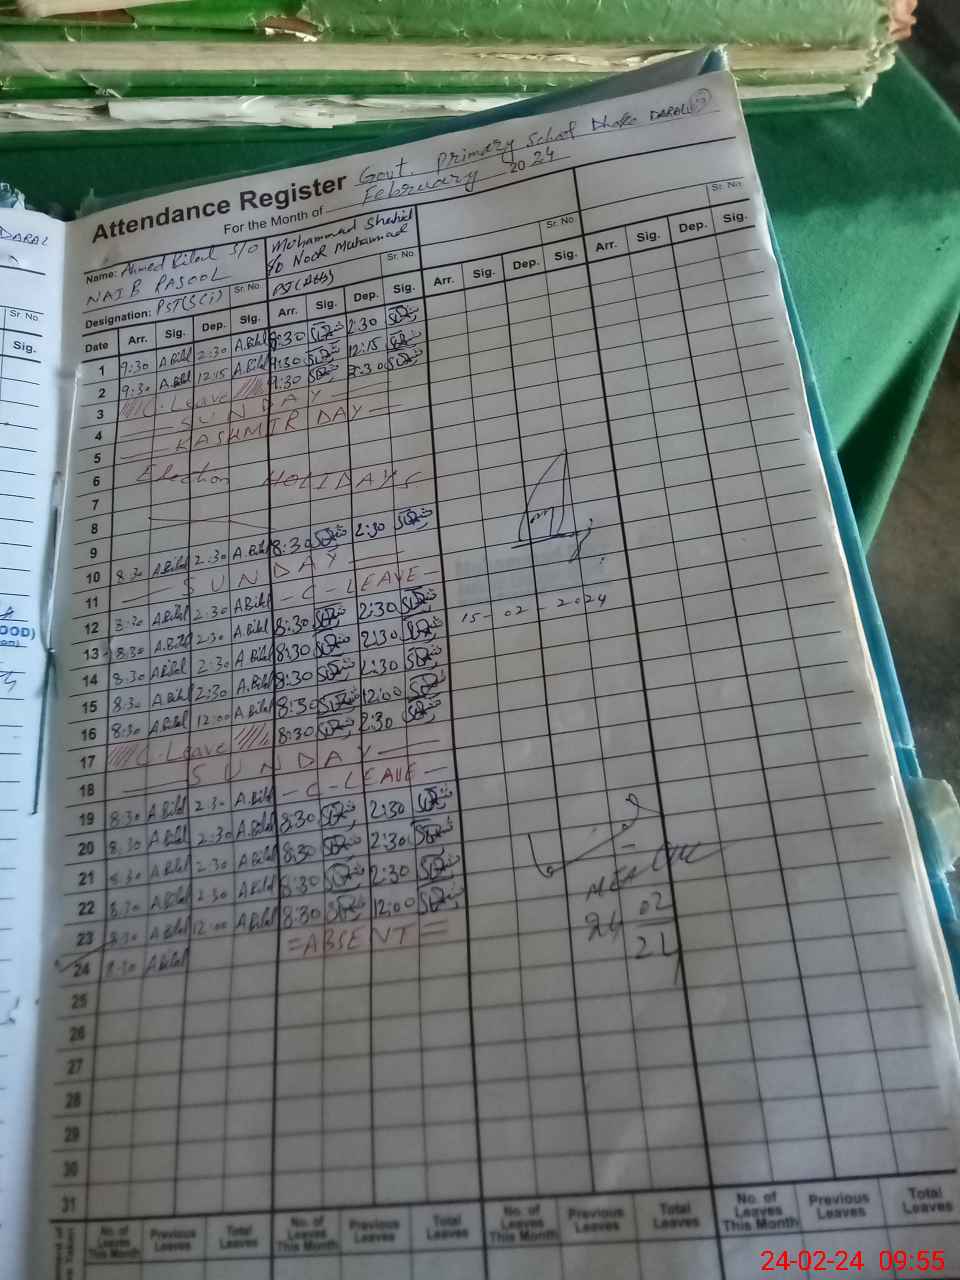 Attendance Register Govt. Primary School Dhoke DARAL
For the Month of February 2024
Name: Ahmed Bilal S/O NAIB RASOOL
Muhammad Shahid S/o Noor Muhammad
Sr. No. Sr. No. Sr. No. Sr. No.
Designation: PST(SCi)
Date Arr. Sig. Dep. Sig. Arr. Sig. Dep. Sig. Arr. Sig. Dep. Sig. Arr. Sig. Dep. Sig.
1 9:30 A.Bilal 2:30 A.Bilal 8:30 2:30
2 9:30 A.Bilal 12:15 A.Bilal 9:30 12:15
3 C-Leave 9:30
4 SUNDAY
5 KASHMIR DAY
6 Election HOLIDAYS
7
8
9
10 8:30 A.Bilal 2:30 A.Bilal 8:30 2:30
11 SUNDAY
12 8:30 A.Bilal 2:30 A.Bilal - C - LEAVE -
13 8:30 A.Bilal 2:30 A.Bilal 8:30 2:30
14 8:30 A.Bilal 2:30 A.Bilal 8:30 2:30
15 8:30 A.Bilal 2:30 A.Bilal 8:30 2:30
16 8:30 A.Bilal 12:00 A.Bilal 8:30 12:00
17 C-Leave 8:30 2:30
18 SUNDAY
19 8:30 A.Bilal 2:30 A.Bilal - C - LEAVE -
20 8:30 A.Bilal 2:30 A.Bilal 8:30 2:30
21 8:30 A.Bilal 2:30 A.Bilal 8:30 2:30
22 8:30 A.Bilal 2:30 A.Bilal 8:30 2:30
23 8:30 A.Bilal 12:00 A.Bilal 8:30 12:00
24 8:30 A.Bilal =ABSENT=
25
26
27
28
29
30
31
15-02-2024
MEA
24 02 24
No. of Leaves This Month Previous Leaves Total Leaves No. of Leaves This Month Previous Leaves Total Leaves No. of Leaves This Month Previous Leaves Total Leaves No. of Leaves This Month Previous Leaves Total Leaves
DARAL
Sr. No.
Sig.
OOD)
24-02-24 09:55